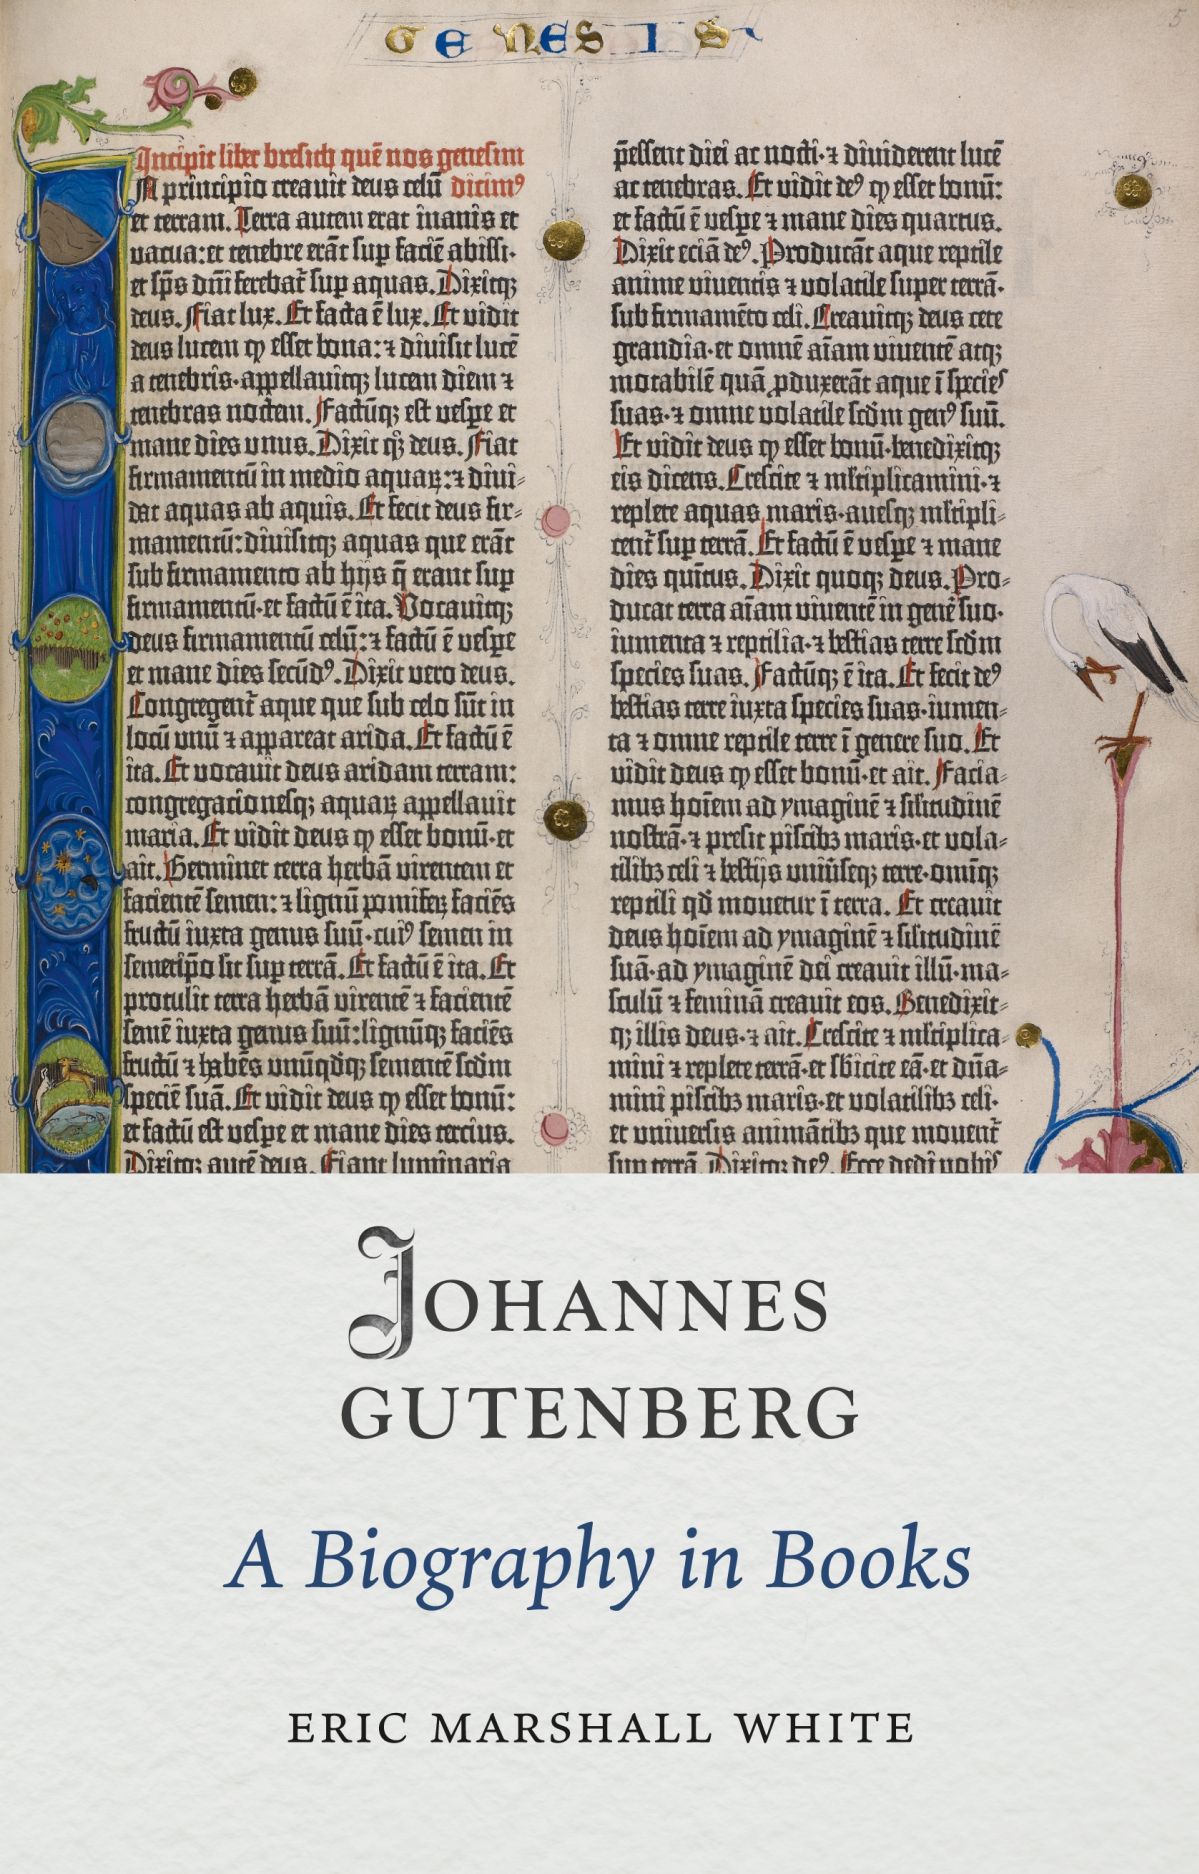 GENESIS
5
Incipit liber bresith quē nos genesim
IN principio creauit deus celū dicimꝰ
et terram. Terra autem erat inanis et
vacua: et tenebre erāt sup faciē abissi·
et sp̄s dn̄i ferebat̄ sup aquas. Dixitqꝫ
deus. Fiat lux. Et facta ē lux. Et vidit
deus lucem ꝙ esset bona: ⁊ diuisit lucē
a tenebris·appellauitqꝫ lucem diem ⁊
tenebras noctem. Factūqꝫ est vespe et
mane dies vnus. Dixit qꝫ deus. Fiat
firmamentū in medio aquaꝝ: ⁊ diui-
dat aquas ab aquis. Et fecit deus fir-
mamentū: diuisitqꝫ aquas que erāt
sub firmamento ab hijs q̄ erant sup
firmamentū·et factū ē ita. Vocauitqꝫ
deus firmamentū celū: ⁊ factū ē vespe
et mane dies secūdꝰ. Dixit vero deus.
Congregent̄ aque que sub celo sūt in
locū vnū ⁊ appareat arida. Et factū ē
ita. Et vocauit deus aridam terram:
congregacionesqꝫ aquaꝝ appellauit
maria. Et vidit deus ꝙ esset bonū·et
ait. Germinet terra herbā virentem et
facientē semen: ⁊ lignū pomiferꝫ faciēs
fructū iuxta genus suū·cuiꝰ semen in
semetip̄o sit sup terrā. Et factū ē ita. Et
protulit terra herbā virentē ⁊ facientē
semē iuxta genus suū: lignūqꝫ faciēs
fructū ⁊ habēs vnūqdqꝫ sementē scdm
speciē suā. Et vidit deus ꝙ esset bonū:
et factū est vespe et mane dies tercius.
Dixitqꝫ autē deus. Fiant luminaria
p̄essent diei ac nocti·⁊ diuiderent lucē
ac tenebras. Et vidit deꝰ ꝙ esset bonū:
et factū ē vespe ⁊ mane dies quartus.
Dixit eciā deꝰ. Producāt aque reptile
anime viuentis ⁊ volatile super terrā·
sub firmamēto celi. Creauitqꝫ deus cete
grandia·et omnē aīam viuentē atqꝫ
motabilē quā ꝓduxerāt aque ī species
suas·⁊ omne volatile scdm genꝰ suū.
Et vidit deus ꝙ esset bonū·benedixitqꝫ
eis dicens. Crescite ⁊ mltiplicamini·⁊
replete aquas maris·auesqꝫ mltipli-
cent̄ sup terrā. Et factū ē vespe ⁊ mane
dies quītus. Dixit quoqꝫ deus. Pro-
ducat terra aīam viuentē in genē suo·
iumenta ⁊ reptilia·⁊ bestias terre scdm
species suas. Factūqꝫ ē ita. Et fecit deꝰ
bestias terre iuxta species suas·iumen-
ta ⁊ omne reptile terre ī genere suo. Et
vidit deus ꝙ esset bonū·et ait. Facia-
mus hoīem ad ymaginē ⁊ silitudinē
nostrā·⁊ presit piscibꝫ maris·et vola-
tilibꝫ celi ⁊ bestijs vniūseqꝫ terre·omīqꝫ
reptili qd mouetur ī terra. Et creauit
deus hoīem ad ymaginē ⁊ silitudinē
suā·ad ymaginē dei creauit illū·ma-
sculū ⁊ feminā creauit eos. Benedixit-
qꝫ illis deus·⁊ ait. Crescite ⁊ mltiplica-
mini ⁊ replete terrā·et sbicite eā·et dn̄a-
mini piscibꝫ maris·et volatilibꝫ celi·
et vniuersis animātibꝫ que mouent̄
sup terrā. Dixitqꝫ deꝰ. Ecce dedi vobis
JOHANNES
GUTENBERG
A Biography in Books
ERIC MARSHALL WHITE